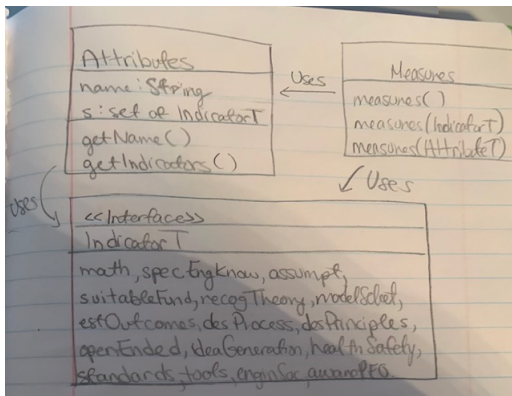 Attributes
name : String
s : set of IndicatorT
getName()
getIndicators()
Uses
Measures
measures()
measures(IndicatorT)
measures(AttributeT)
Uses
Uses
<<Interface>>
IndicatorT
math, specEngKnow, assumpt,
suitableFund, recogTheory, modelSelect,
estOutcomes, desProcess, desPrinciples,
openEnded, ideaGeneration, healthSafety,
standards, tools, engInSoc, awarePEO